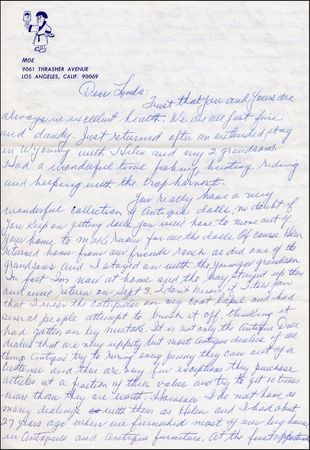 MOE
9061 THRASHER AVENUE
LOS ANGELES, CALIF. 90069
Dear Linda:
Trust that you and yours are
always in excellent health. We are all just fine
and dandy. Just returned after an extended stay
in Wyoming with Helen and my 2 grandsons.
Had a wonderful time fishing, hunting, riding
and helping with the crop harvest.
You really have a very
wonderful collection of Antique dolls, no doubt if
you keep on getting dolls you will have to move out of
your home to make room for all the dolls. Of course Helen
returned home from our friends ranch as did one of the
grandsons and I stayed on with the younger grandson
In fact I'm now at home and the boy stayed up there
and will return on Sept 3. I don't know if I told you
that I wore the caterpillar on my coat lapel and had
several people attempt to brush it off, thinking it
had gotten on by mistake. It is not only the antique doll
dealers that are very uppity but most antique dealers of all
type antique try to wring every penny they can out of a
customer and there are very few exceptions they purchase
articles at a fraction of their value and try to get 10 times
more than they are worth. However I do not have as
many dealings with them as Helen and I had about
27 years ago when we furnished most of our big house
in Antiques and antique furniture. At the first opportunity